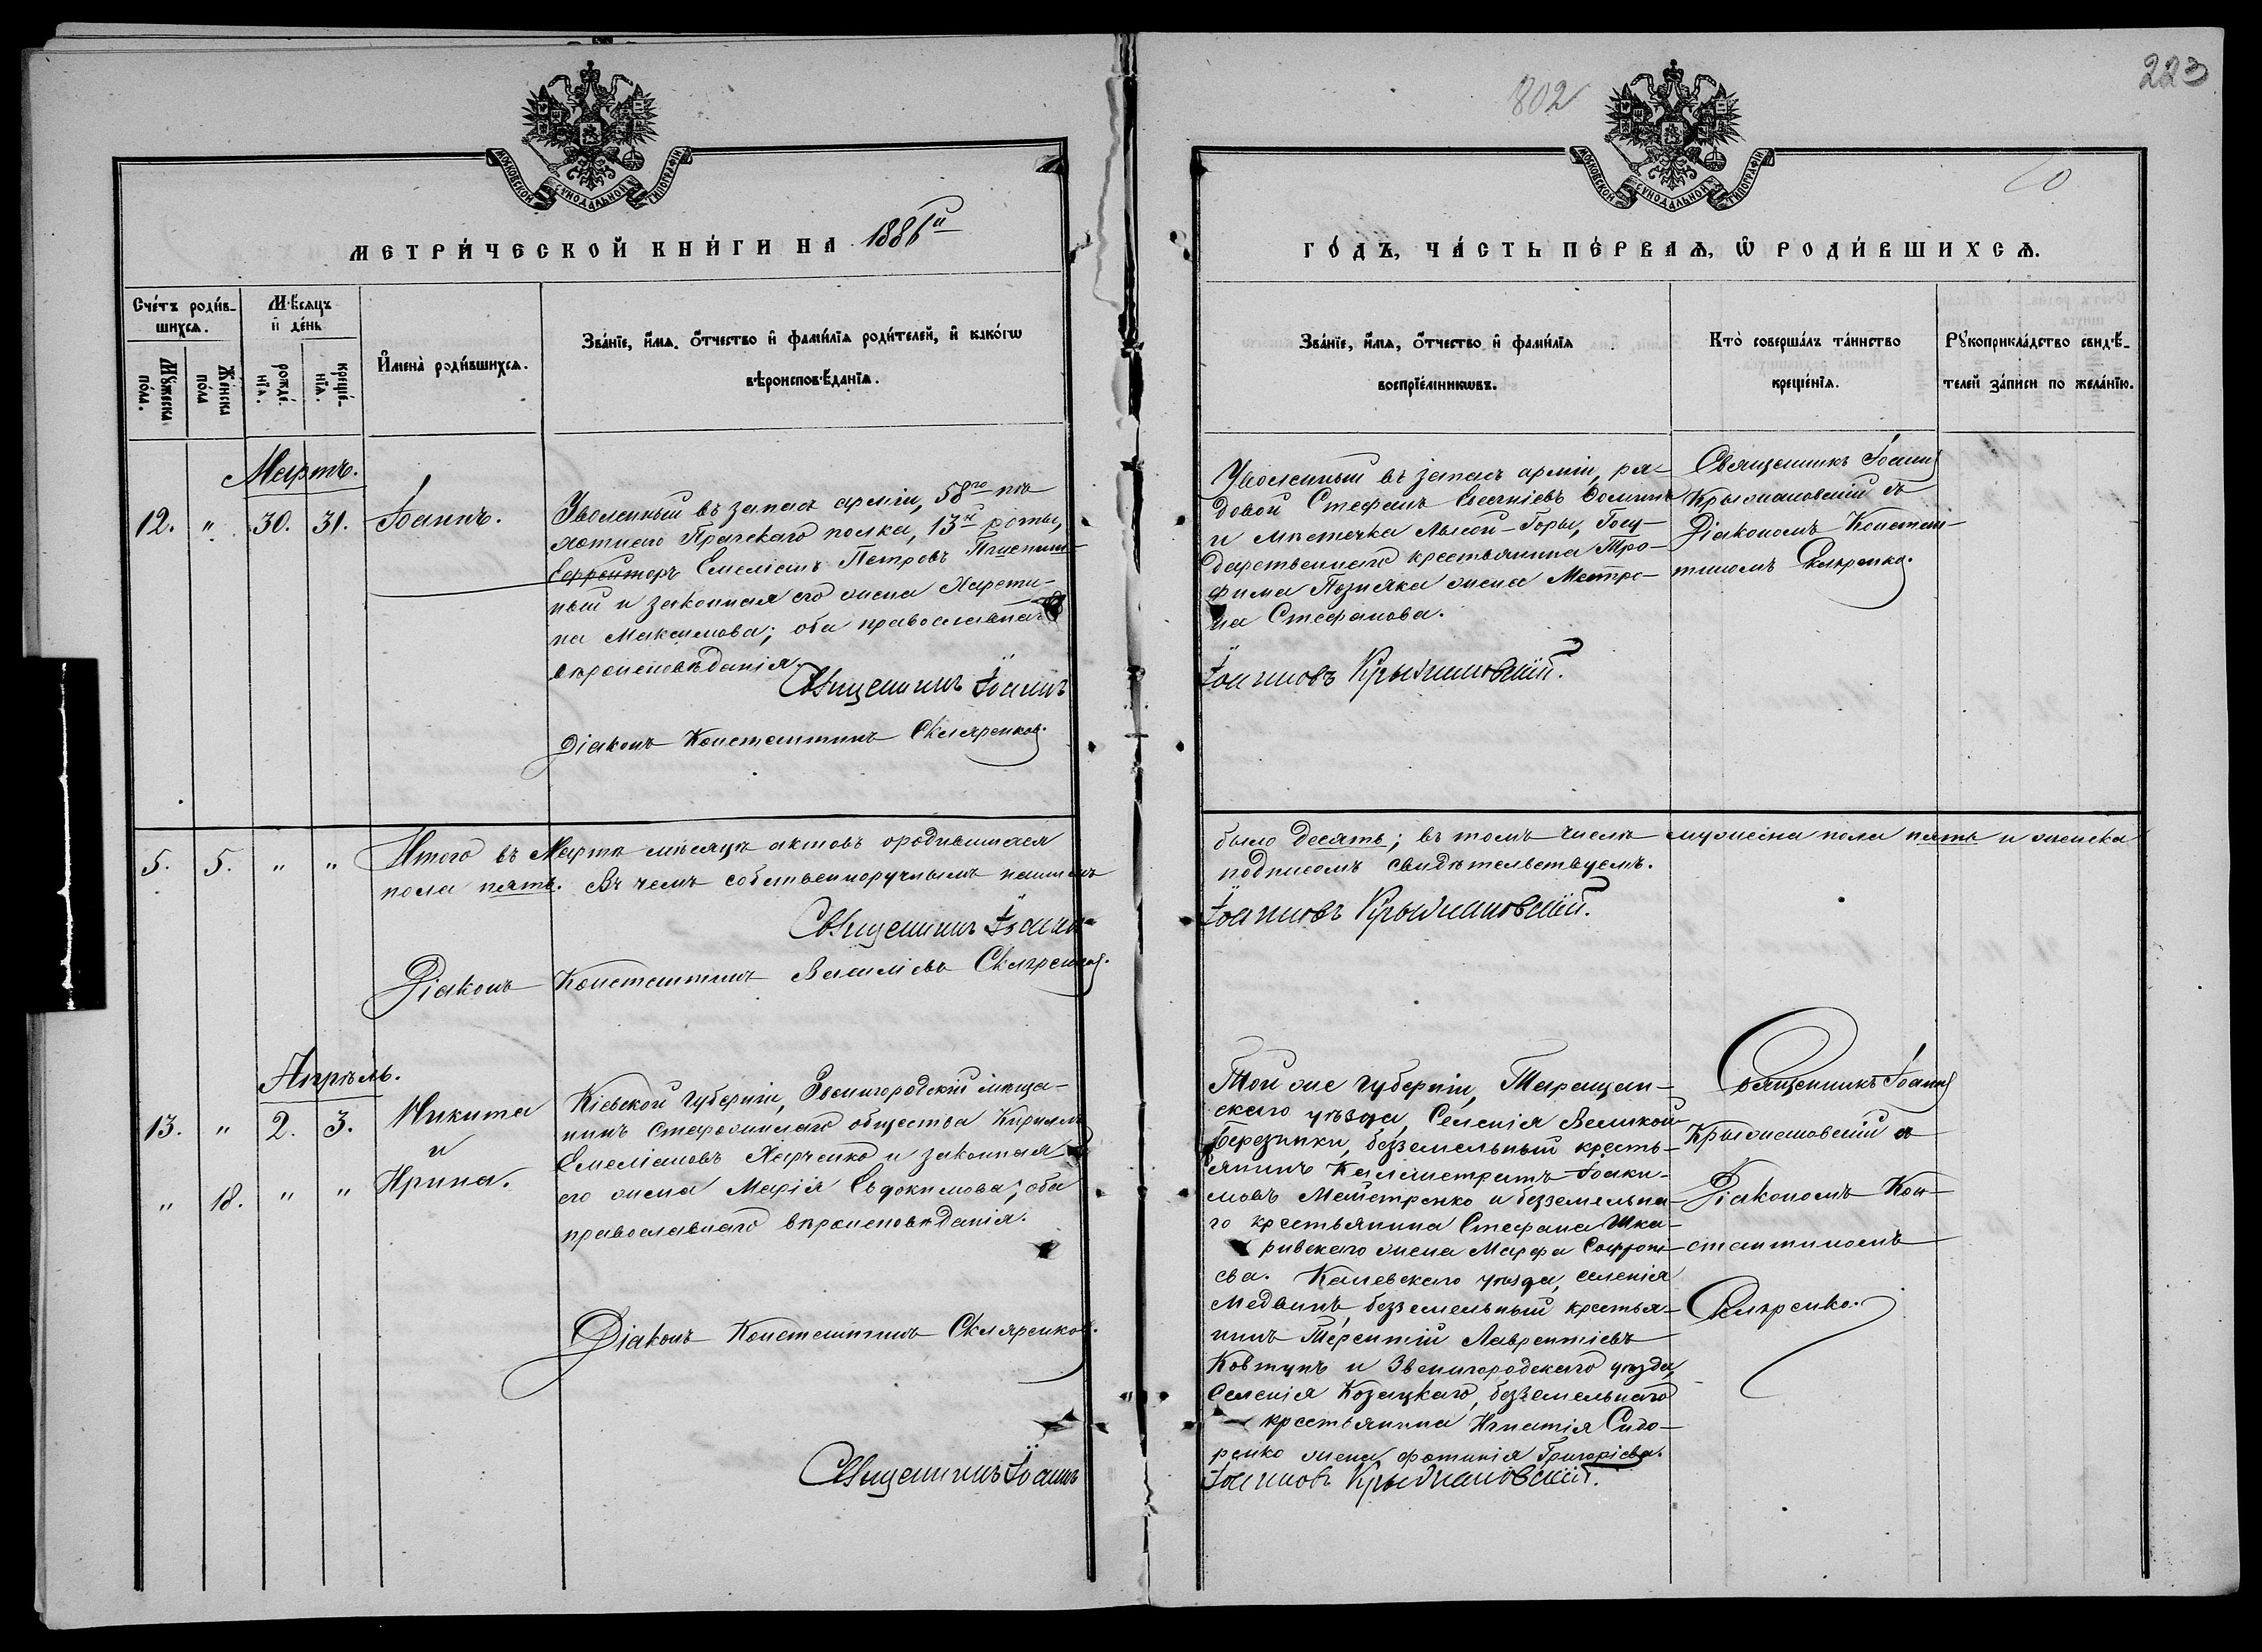 802
223
МОСКОВСКОЙ СѴНОДАЛЬНОЙ ТИПОГРАФІИ
МОСКОВСКОЙ СѴНОДАЛЬНОЙ ТИПОГРАФІИ
МЕТРИ́ЧЕСКОЙ КНИ́ГИ НА 1886й
ГО́ДЪ, ЧА́СТЬ ПЕ́РВАѦ, Ѡ РОДИ́ВШИХСѦ.
Сче́тъ роди́в-
шихсѧ.
Мѣ́сѧцъ
и де́нь
Мꙋ́жеска
по́ла.
Же́нска
по́ла
рожде́-
нїѧ.
креще́-
нїѧ.
И҆мена̀ роди́вшихсѧ.
Зва́нїе, и҆́мѧ, ѻ҆́тчество и҆ фами́лїѧ роди́телей, и҆ како́гѡ
вѣроисповѣ́данїѧ.
Зва́нїе, и҆́мѧ, ѻ҆́тчество и҆ фами́лїѧ
воспрїе́мникѡвъ.
Кто̀ соверша́лъ та́инство
креще́нїѧ.
Рꙋкоприкла́дство свидѣ́-
телей за́писи по жела́нїю.
Мартъ.
12. " 30. 31. Іоаннъ.
Уволенный въ запасъ арміи, 58го пѣ
хотнаго Пражскаго полка, 13й роты,
Ефрейторъ Емеліанъ Петровъ
ный и законная его жена Харити-
на Максимова; оба православнаго
вѣроисповѣданія.
Священникъ Іоаннъ
Діаконъ Константинъ Скляренко.
Уволенный въ запасъ арміи, ря-
довой Стефанъ
и мѣстечка Лысой-Горы, Госу-
дарственнаго крестьянина Тро-
фима Позняка жена Матро-
на Стефанова.
Іоанновъ Крыжановскій.
Священникъ Іоаннъ
Крыжановскій съ
Діакономъ Констан-
тиномъ Скляренко.
5. 5. " " Итого въ Мартѣ мѣсяцѣ актовъ о родившихся
пола пять. Въ чемъ собственноручнымъ нашимъ
Священникъ Іоаннъ
Діаконъ Константинъ Василіевъ Скляренко.
было десять; въ томъ числѣ мужеска пола пять и женска
подписомъ свидѣтельствуемъ.
Іоанновъ Крыжановскій.
Апрѣль.
13. " 2. 3. Никита
и
" 18. " " Ирина.
Кіевской губерніи, Звенигородскій мѣща-
нинъ Старожилаго общества Кириллъ
Емеліановъ Харченко и законная
его жена Марія Евдокимова; оба
православнаго вѣроисповѣданія.
Діаконъ Константинъ Скляренко.
Священникъ Іоаннъ
Той же губерніи, Таращан-
скаго уѣзда, Селенія Великой
Березянки, безземельный кресть-
янинъ Каллистратъ Іоаки-
мовъ Майстренко и безземельна-
го крестьянина Стефана Шка-
ривскаго жена Марфа Софроні-
ева. Каневскаго уѣзда, селенія
Медвинъ, безземельный крестья-
нинъ Терентій Лаврентіевъ
Ковтунъ и Звенигородскаго уѣзда,
Селенія Козацкаго, безземельнаго
крестьянина Игнатія Сидо-
ренко жена, Фотинія Григоріева.
Іоанновъ Крыжановскій.
Священникъ Іоаннъ
Крыжановскій съ
Діакономъ Кон-
стантиномъ
Скляренко.